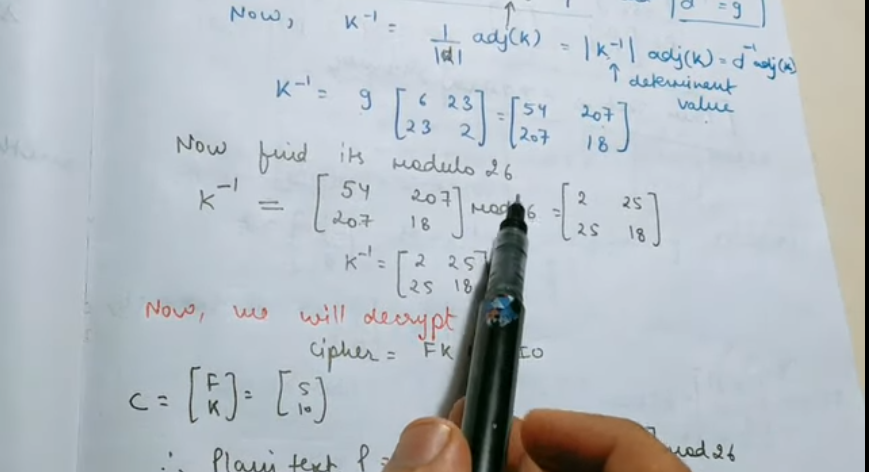 d⁻¹ = 9
Now, K⁻¹ = 1/|d| adj(K) = |K⁻¹| adj(K) = d⁻¹ adj(K)
↑ determinent value
K⁻¹ = 9 [6 23; 23 2] = [54 207; 207 18]
Now find its modulo 26
K⁻¹ = [54 207; 207 18] mod 6 = [2 25; 25 18]
K⁻¹ = [2 25; 25 18
Now, we will decrypt
Cipher = FK IO
C = [F; K] = [5; 10]
∴ Plain text P = mod 26